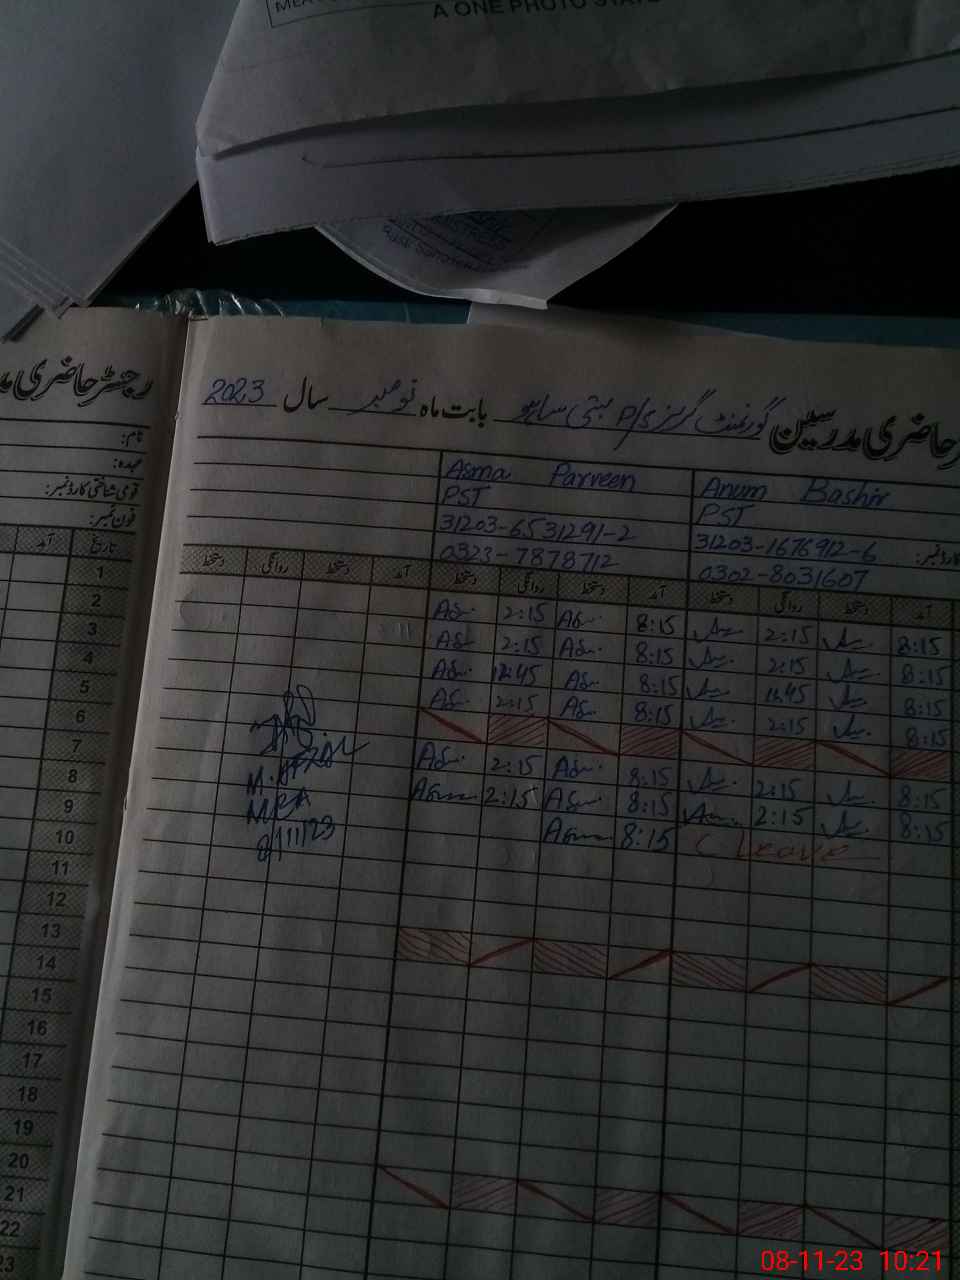 A ONE PHOTO STATE
رجسٹر حاضری مد
حاضری مدرسین گورنمنٹ گرلز P/S بستی ساہو بابت ماہ نومبر سال 2023
نام:
عہدہ:
قومی شناختی کارڈ نمبر:
فون نمبر:
Asma Parveen
PST
31203-6531291-2
0323-7878712
Anum Bashir
PST
31203-1676912-6
0302-8031607
کارڈ نمبر
آمد تاریخ
دستخط روانگی دستخط آمد دستخط روانگی دستخط آمد دستخط روانگی دستخط آمد
1
2:15 8:15 2:15 8:15
2
2:15 8:15 2:15 8:15
3
12:45 8:15 12:45 8:15
4
2:15 8:15 2:15 8:15
5
6
2:15 8:15 2:15 8:15
7
Asma 2:15 8:15 2:15 8:15
8
Asma 8:15 Leave
9
10
11
12
13
14
15
16
17
18
19
20
21
22
23
M. AFZAL
MEA
8/11/23
08-11-23 10:21